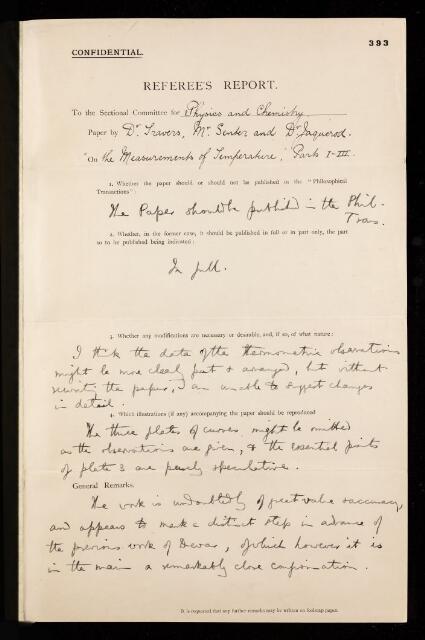 393
CONFIDENTIAL.
REFEREE'S REPORT.
To the Sectional Committee for Physics and Chemistry
Paper by Dr. Travers, Mr. Senter and Dr. Jaquerod.
"On the Measurements of Temperature," Parts I-III.
1. Whether the paper should or should not be published in the "Philosophical
Transactions":
The Paper should be published in the Phil-
Trans.
2. Whether, in the former case, it should be published in full or in part only, the part
so to be published being indicated:
In full.
3. Whether any modifications are necessary or desirable, and, if so, of what nature:
I think the data of the thermometric observations
might be more clearly put & arranged, but without
the paper, I am unable to suggest changes
in detail.
4. Which illustrations (if any) accompanying the paper should be reproduced
The three plates of curves might be omitted
as the observations are given, & the essential parts
of plate 3 are purely speculative.
General Remarks.
The work is undoubtedly of great value & accuracy,
and appears to make a distinct step in advance of
the previous work of Dewar, of which however it is
in the main a remarkably close confirmation.
It is requested that any further remarks may be written on foolscap paper.